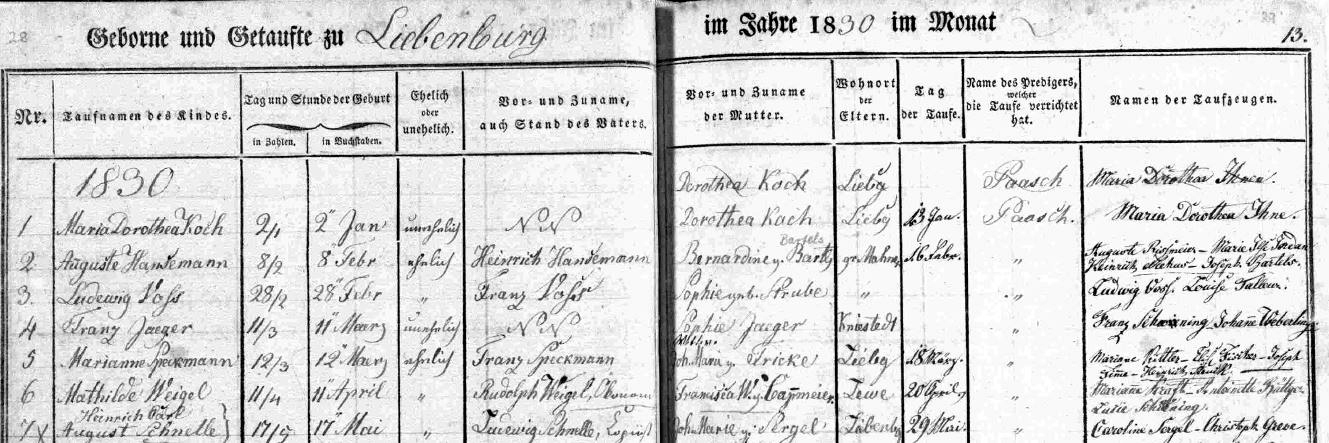 28 Geborne und Getaufte zu Liebenburg im Jahre 1830 im Monat 13.
Nr. Taufnamen des Kindes. Tag und Stunde der Geburt in Zahlen. in Buchstaben. Ehelich oder unehelich. Vor- und Zuname, auch Stand des Vaters. Vor- und Zuname der Mutter. Wohnort der Eltern. Tag der Taufe. Name des Predigers, welcher die Taufe verrichtet hat. Namen der Taufzeugen.
1830 Dorothea Koch Liebg Paasch Maria Dorothea
1 Maria Dorothea Koch 2/1 2" Jan unehelich N N Dorothea Koch Liebg 13 Jan. Paasch. Maria Dorothea Ihne.
Bartels
2 Auguste Hansemann 8/2 8" Febr ehelich Heinrich Hansemann Bernardine gr Mahner Febr. " Auguste Marie Jordan
Heinrich Joseph Bartels.
3. Ludewig Voss 28/2 28" Febr " Franz Voss Sophie geb. Strube " " Ludwig Voss. Louise
4 Franz Jaeger 11/3 11" Maerz unehelich N N Sophie Jaeger Kniestedt " Franz Johanne Weberling
5 Marianne Speckmann 12/3 12" Maerz ehelich Franz Speckmann Joh. Maria Fricke Liebg 18 März. " Mariane Fischer - Joseph
Heinrich
6 Mathilde Weigel 11/4 11" April " Rudolph Weigel, Francisca W. Lewe 20 April " Mariane Antoinette
Heinrich Carl
7 August Schnelle 17/5 17" Mai " Ludewig Schnelle, Copiist Joh. Marie Liebenbg 29 Mai " Caroline - Christoph Greve.